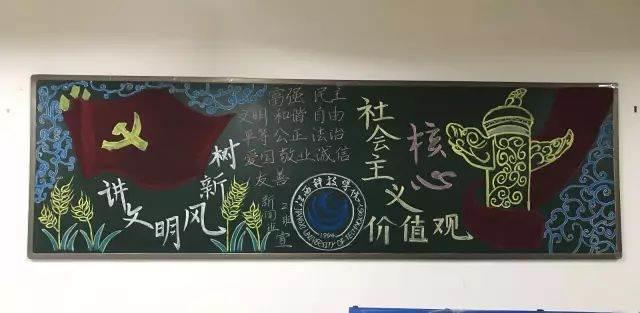 讲文明
树新风
富强 民主
文明 和谐 自由
平等 公正 法治
爱国 敬业 诚信
友善
江西科技学院
1994
JIANGXI UNIVERSITY OF TECHNOLOGY
社会主义
核心
价值观